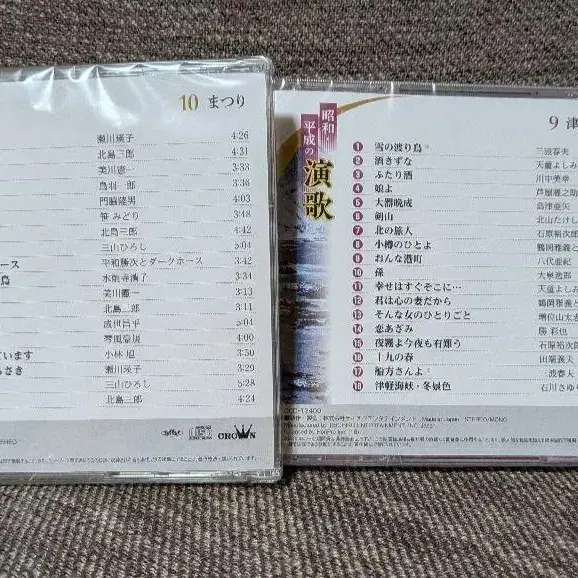 10 まつり
瀬川瑛子 4:26
北島三郎 4:31
美川憲一 3:33
鳥羽一郎 3:36
門脇陸男 3:03
笹みどり 3:48
北島三郎 3:42
三山ひろし 5:04
ース 平和勝次とダークホース 3:42
鳥 水前寺清子 3:34
美川憲一 3:13
北島三郎 3:11
成世昌平 5:04
琴風豪規
ています 小林 旭 3:50
さき 瀬川瑛子 3:29
三山ひろし 5:28
北島三郎 4:24
STEREO
CROWN
昭和
平成の
演歌
9 津
1 雪の渡り鳥 三波春夫
2 酒きずな 天童よしみ
3 ふたり酒 川中美幸
4 娘よ 芦屋雁之助
5 大器晩成 島津亜矢
6 剣山 北山たけし
7 北の旅人 石原裕次郎
8 小樽のひとよ 鶴岡雅義と
9 おんな港町 八代亜紀
10 孫 大泉逸郎
11 幸せはすぐそこに… 天童よしみ
12 君は心の妻だから 鶴岡雅義
13 そんな女のひとりごと 増位山太志
14 恋あざみ 勝 彩也
15 夜霧よ今夜も有難う 石原裕次郎
16 十九の春 田端義夫
17 船方さんよ 波春夫
18 津軽海峡・冬景色 石川さゆり
Made in Japan STEREO/MONO